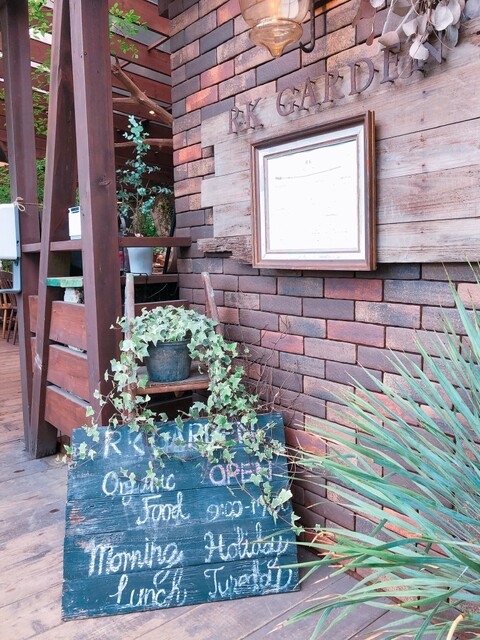 RK GARDEN
RK GARDEN
Organic OPEN
Food 9:00-17
Morning Holiday
Lunch Tuesday